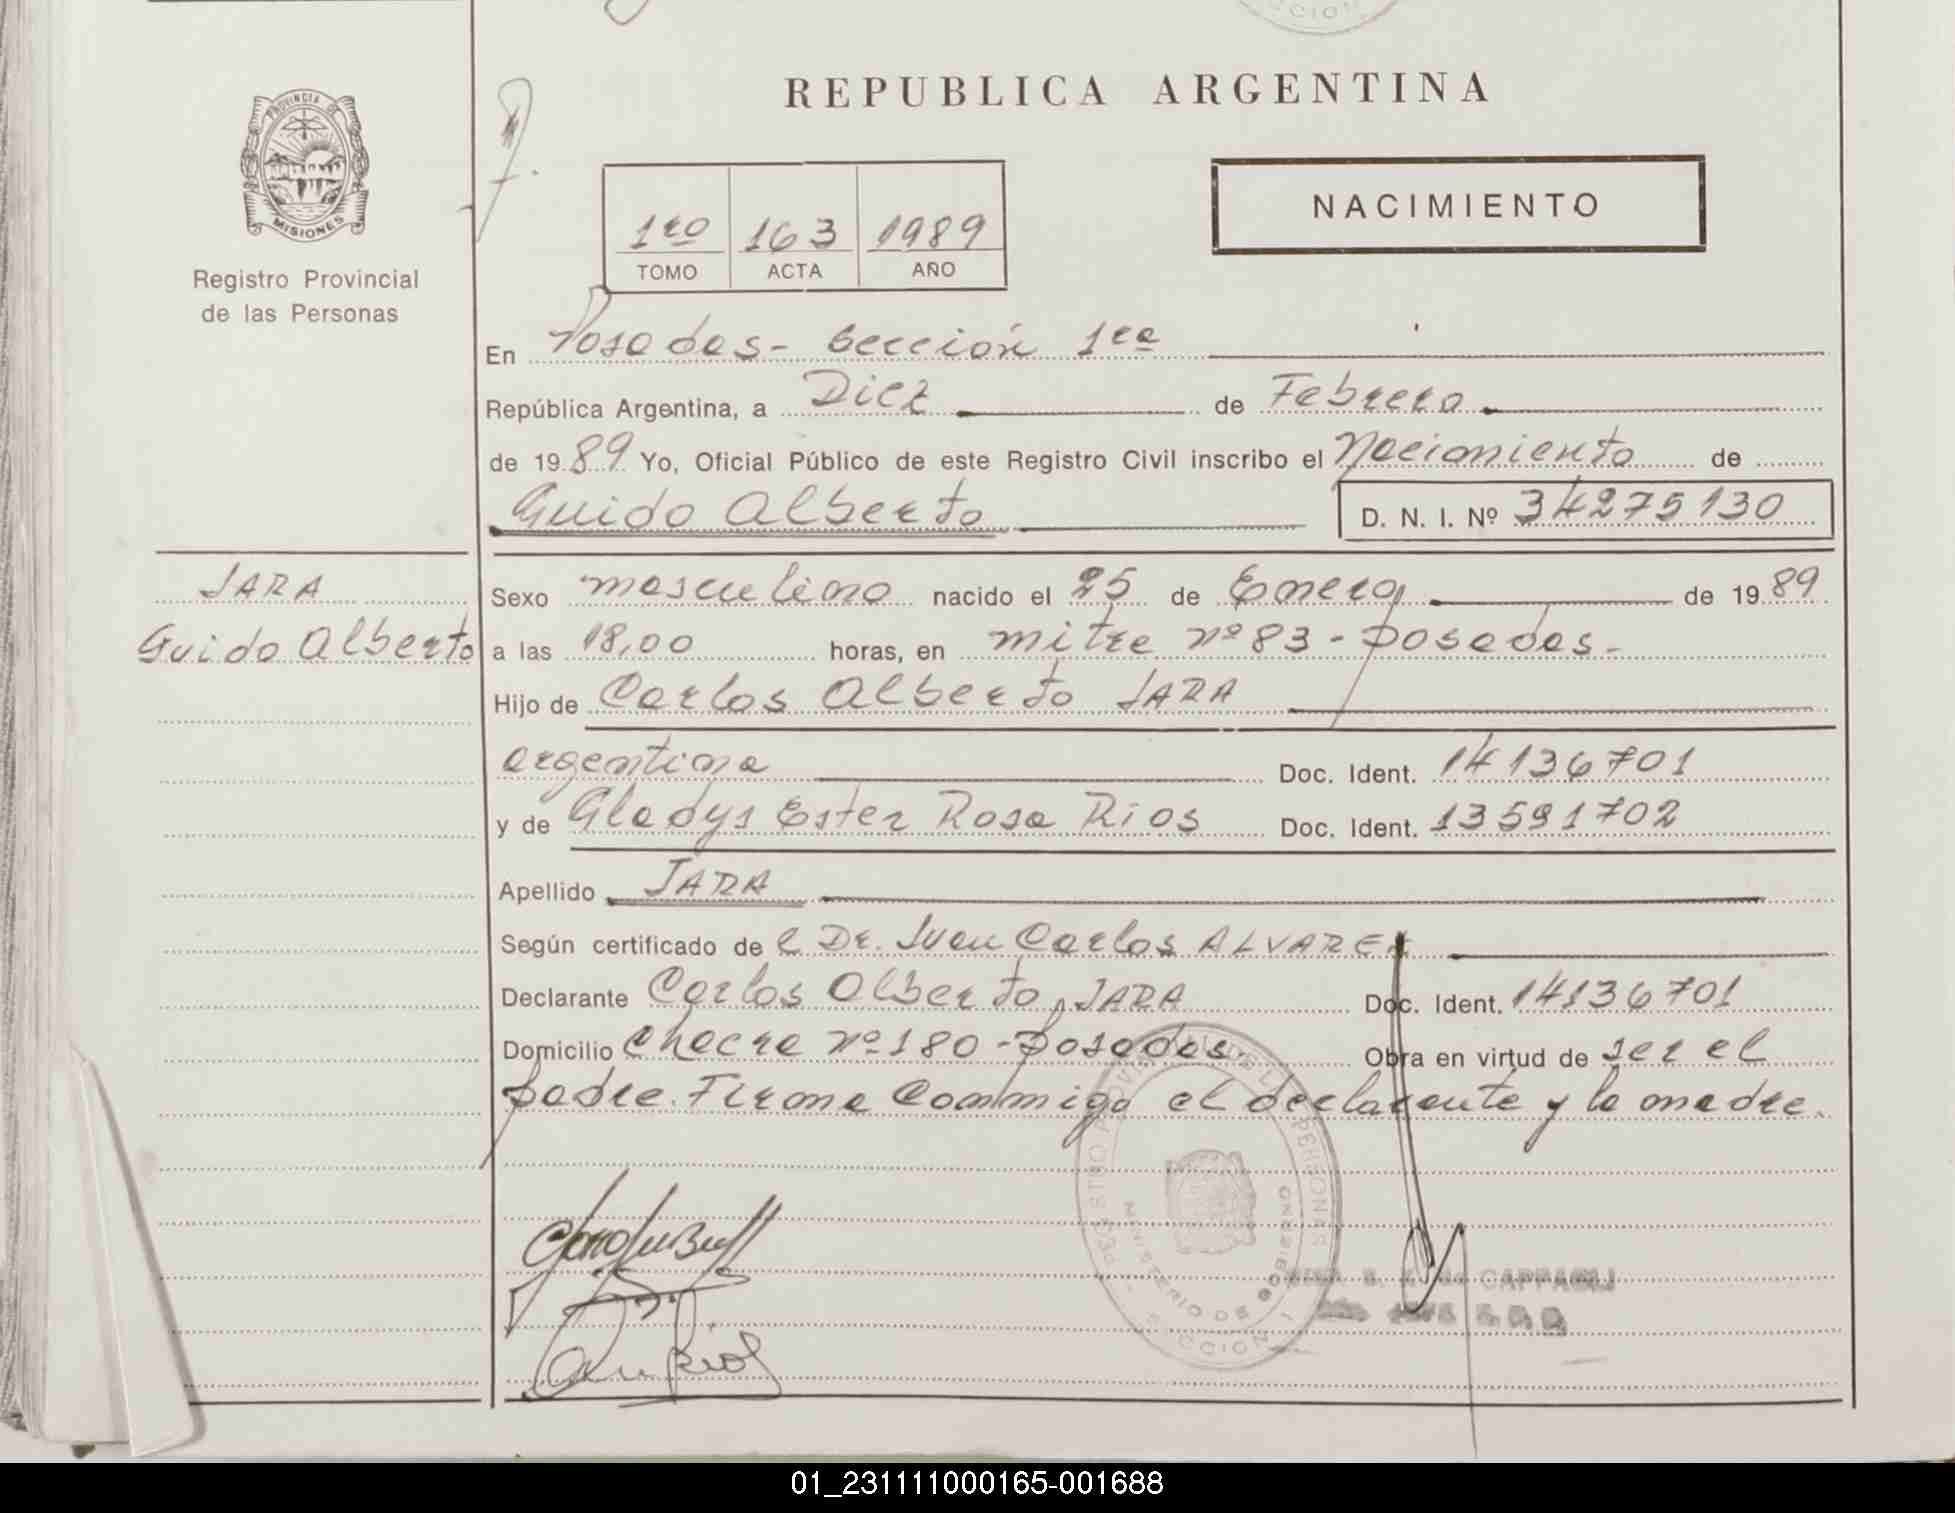 REPUBLICA ARGENTINA
PROVINCIA DE
MISIONES
Registro Provincial
de las Personas
NACIMIENTO
1ro 163 1989
TOMO ACTA AÑO
En Posadas - Sección 1ra
República Argentina, a Diez de Febrero
de 1989 Yo, Oficial Público de este Registro Civil inscribo el Nacimiento de
Guido Alberto D. N. I. Nº 34275130
JARA
Guido Alberto
Sexo masculino nacido el 25 de Enero de 1989
a las 18,00 horas, en mitre nº 83 - Posadas.
Hijo de Carlos Alberto JARA
argentina Doc. Ident. 14136701
y de Gladys Ester Rosa Rios Doc. Ident. 13591702
Apellido JARA
Según certificado de l Dr. Juan Carlos ALVAREZ
Declarante Carlos Alberto JARA Doc. Ident. 14136701
Domicilio Chacra nº 180 - Posadas. Obra en virtud de ser el
padre. Firma Conmigo el declarante y la madre.
01_231111000165-001688